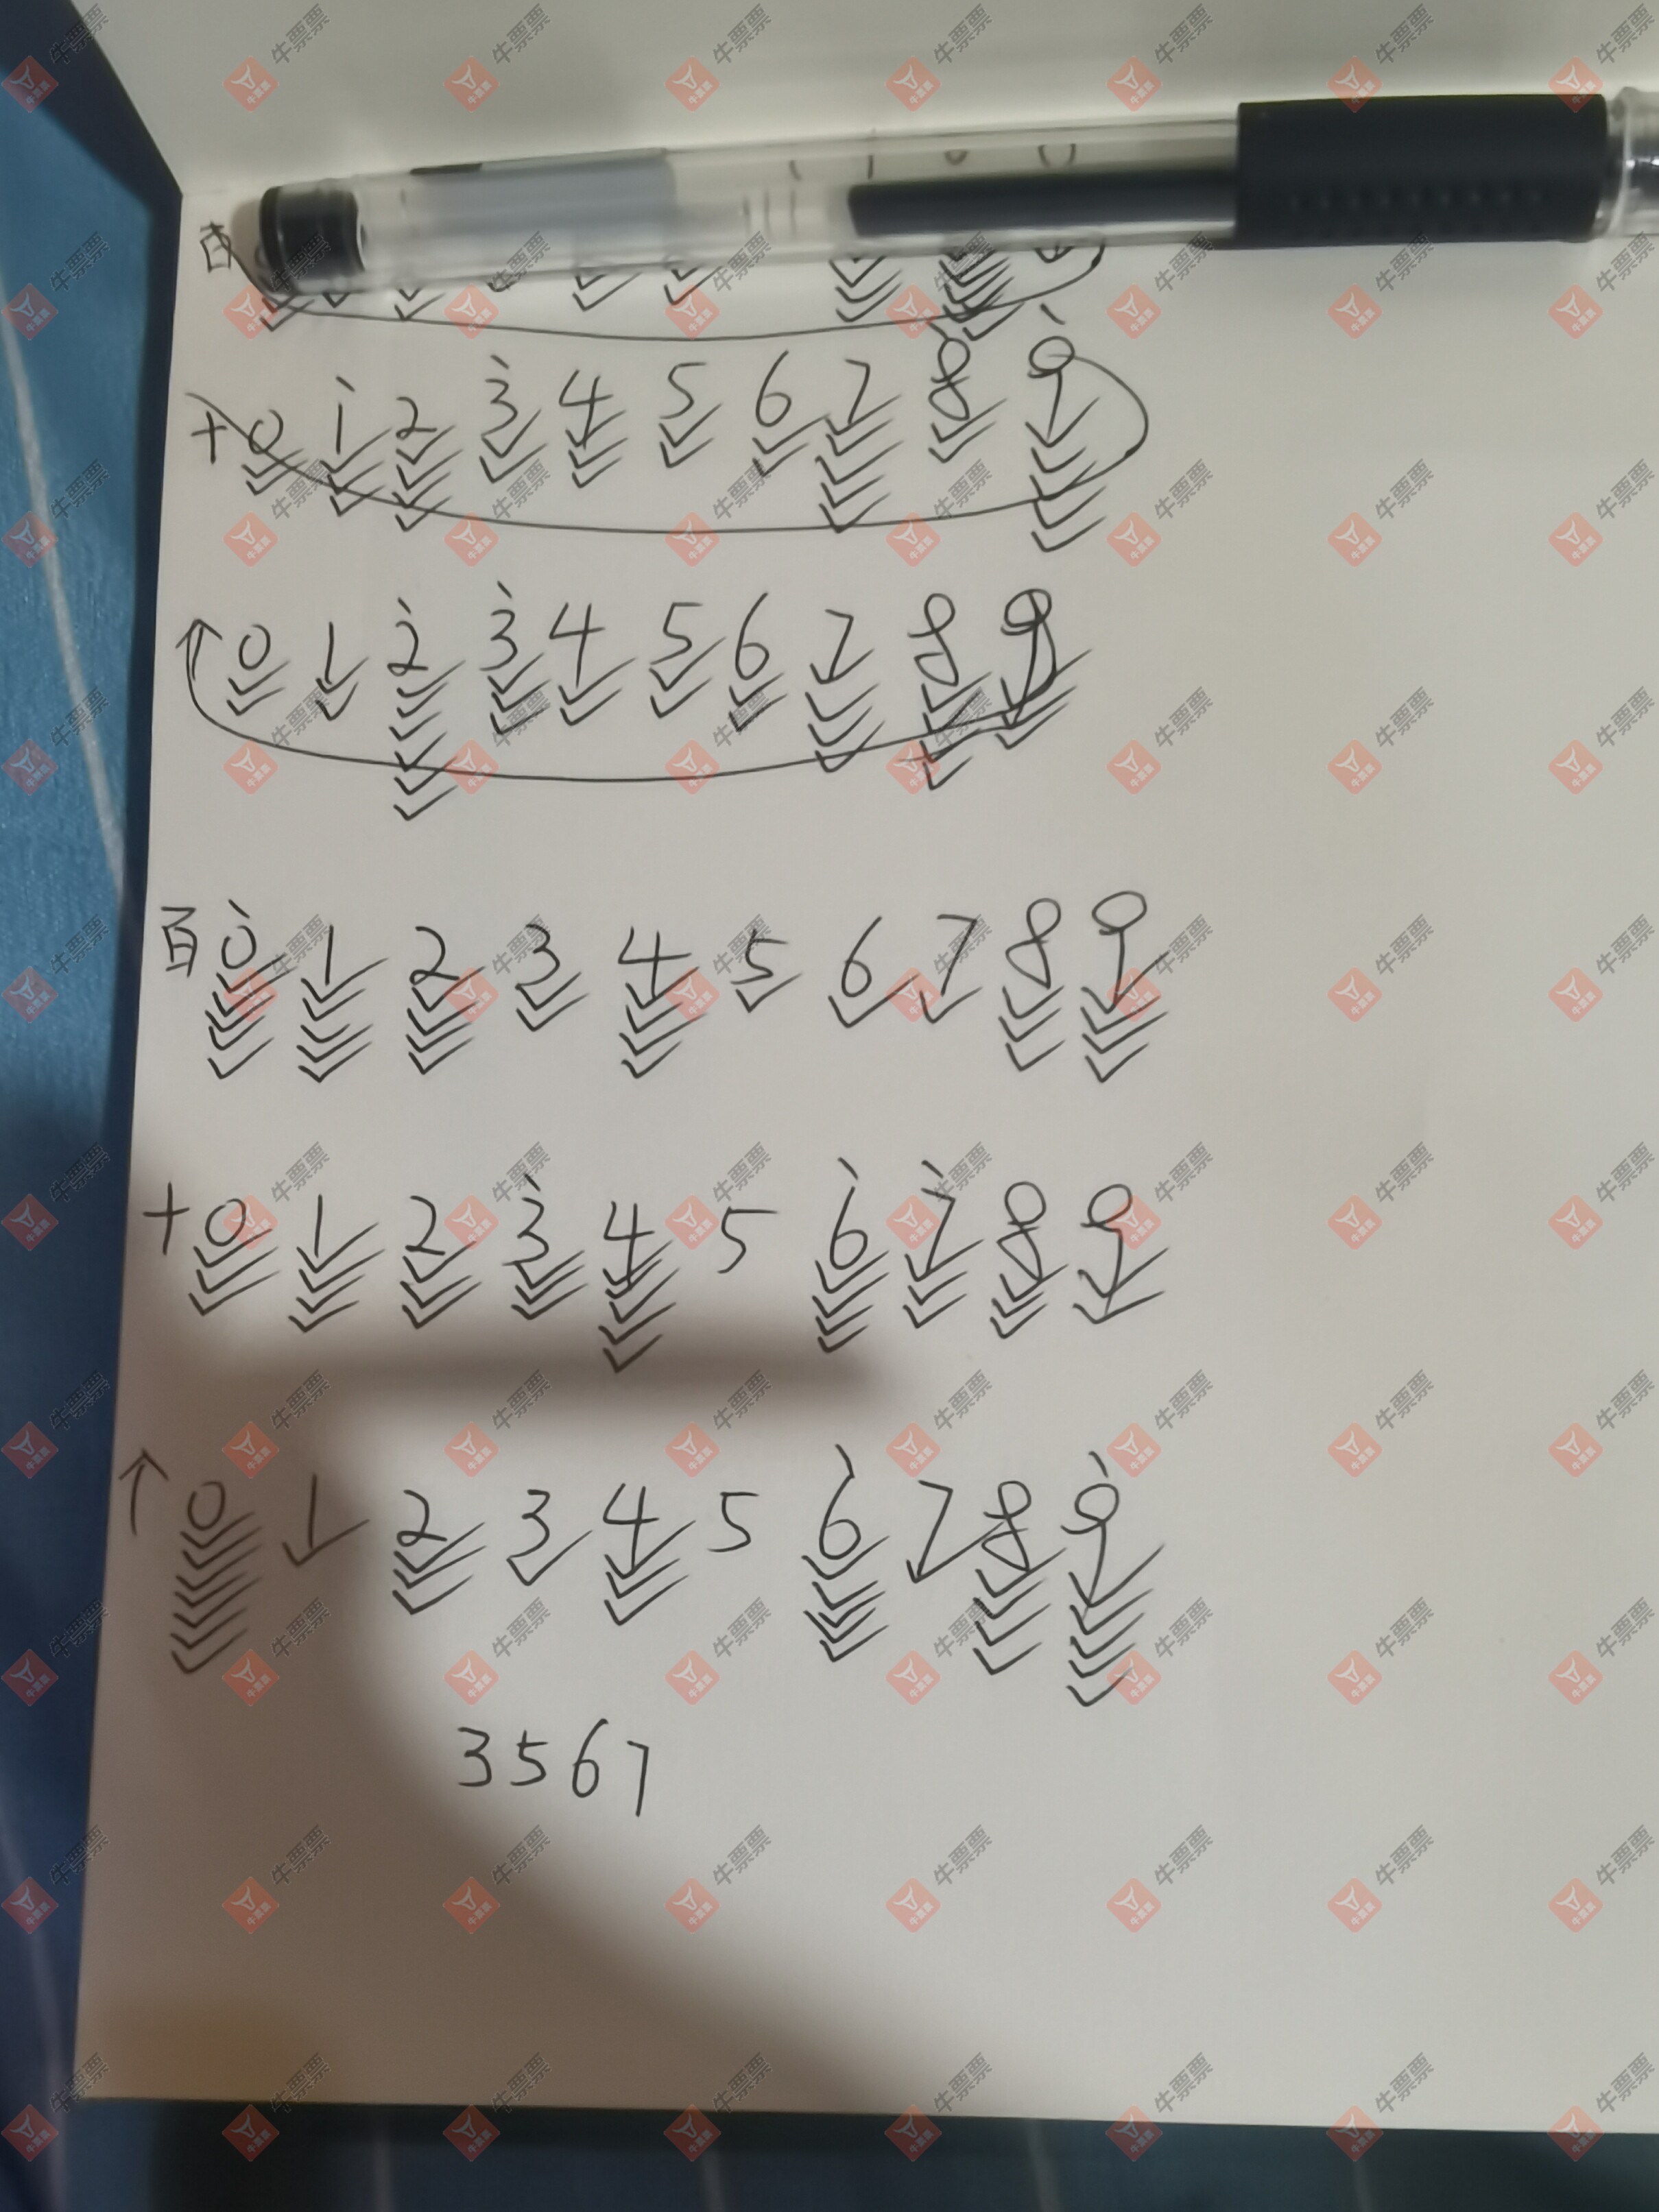 百
十 0 1 2 3 4 5 6 7 8 9
个 0 1 2 3 4 5 6 7 8 9
百 0 1 2 3 4 5 6 7 8 9
十 0 1 2 3 4 5 6 7 8 9
个 0 1 2 3 4 5 6 7 8 9
3 5 6 7
牛票票